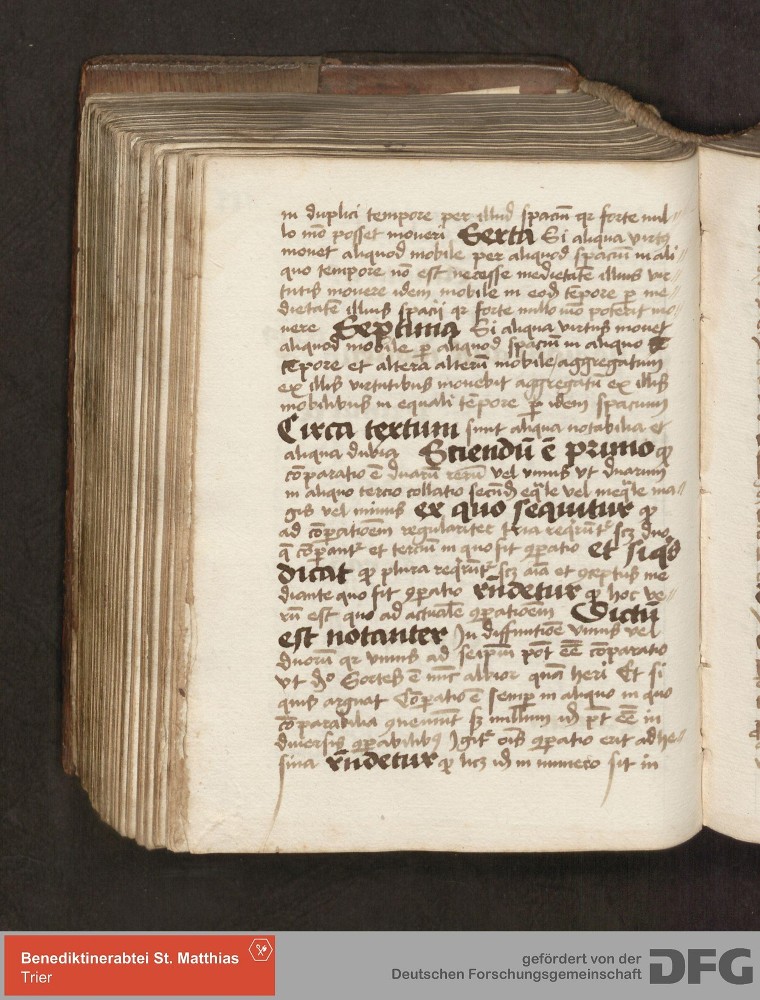 in duplici tempore per illud spaciū qr forte nul=
lo mō posset moueri Sexta Si aliqua virtꝰ
mouet aliquod mobile per aliquod spaciū in ali=
quo tempore nō est necesse medietatē illius vir=
tutis mouere idem mobile in eodē tēpore ꝑ me=
dietatē illius spacij qr forte nullo mō poterit mo=
uere Septima Si aliqua virtus mouet
aliquod mobile ꝑ aliquod spaciū in aliquo
tēpore et altera alterū mobile / aggregatum
ex illis virtutibus mouebit aggregatū ex illis
mobilibus in equali tēpore ꝑ idem spacium
Circa textum sunt aliqua notabilia et
aliqua dubia Sciendū ē primo ꝙ
cōparatio ē duarū rerū vel vnius vt duarum
in aliquo tercio collatio secūdū eq̄le vel ineq̄le ma=
gis vel minus ex quo sequitur ꝙ
ad cōꝑationem regulariter tria reqrūtr scꝫ duo
q̄ cōꝑantr et terciū in quo fit ꝯꝑatio et si qs
dicat ꝙ plura reqrūtr scꝫ aīa et ꝯceptus me
diante quo fit ꝯꝑatio rūdetur ꝙ hoc ve=
rū est quo ad actualē ꝯꝑationem Dictū
est notanter In diffinitiōe vnius vel
duorū qr vnus ad seipsum pōt ēē cōparatio
vt Sortes ē nūc albior quā heri Et si
quis arguat Cōꝑatio ē semꝑ in aliquo in quo
cōparabilia ꝯueniunt sꝫ nullum idē pōt ēē in
diuersis ꝯꝑabilibꝰ Igitr oīs ꝯꝑatio erit adhe=
siua rūdetur ꝙ licꝫ idē in numero sit in
Benediktinerabtei St. Matthias
Trier
gefördert von der
Deutschen Forschungsgemeinschaft
DFG